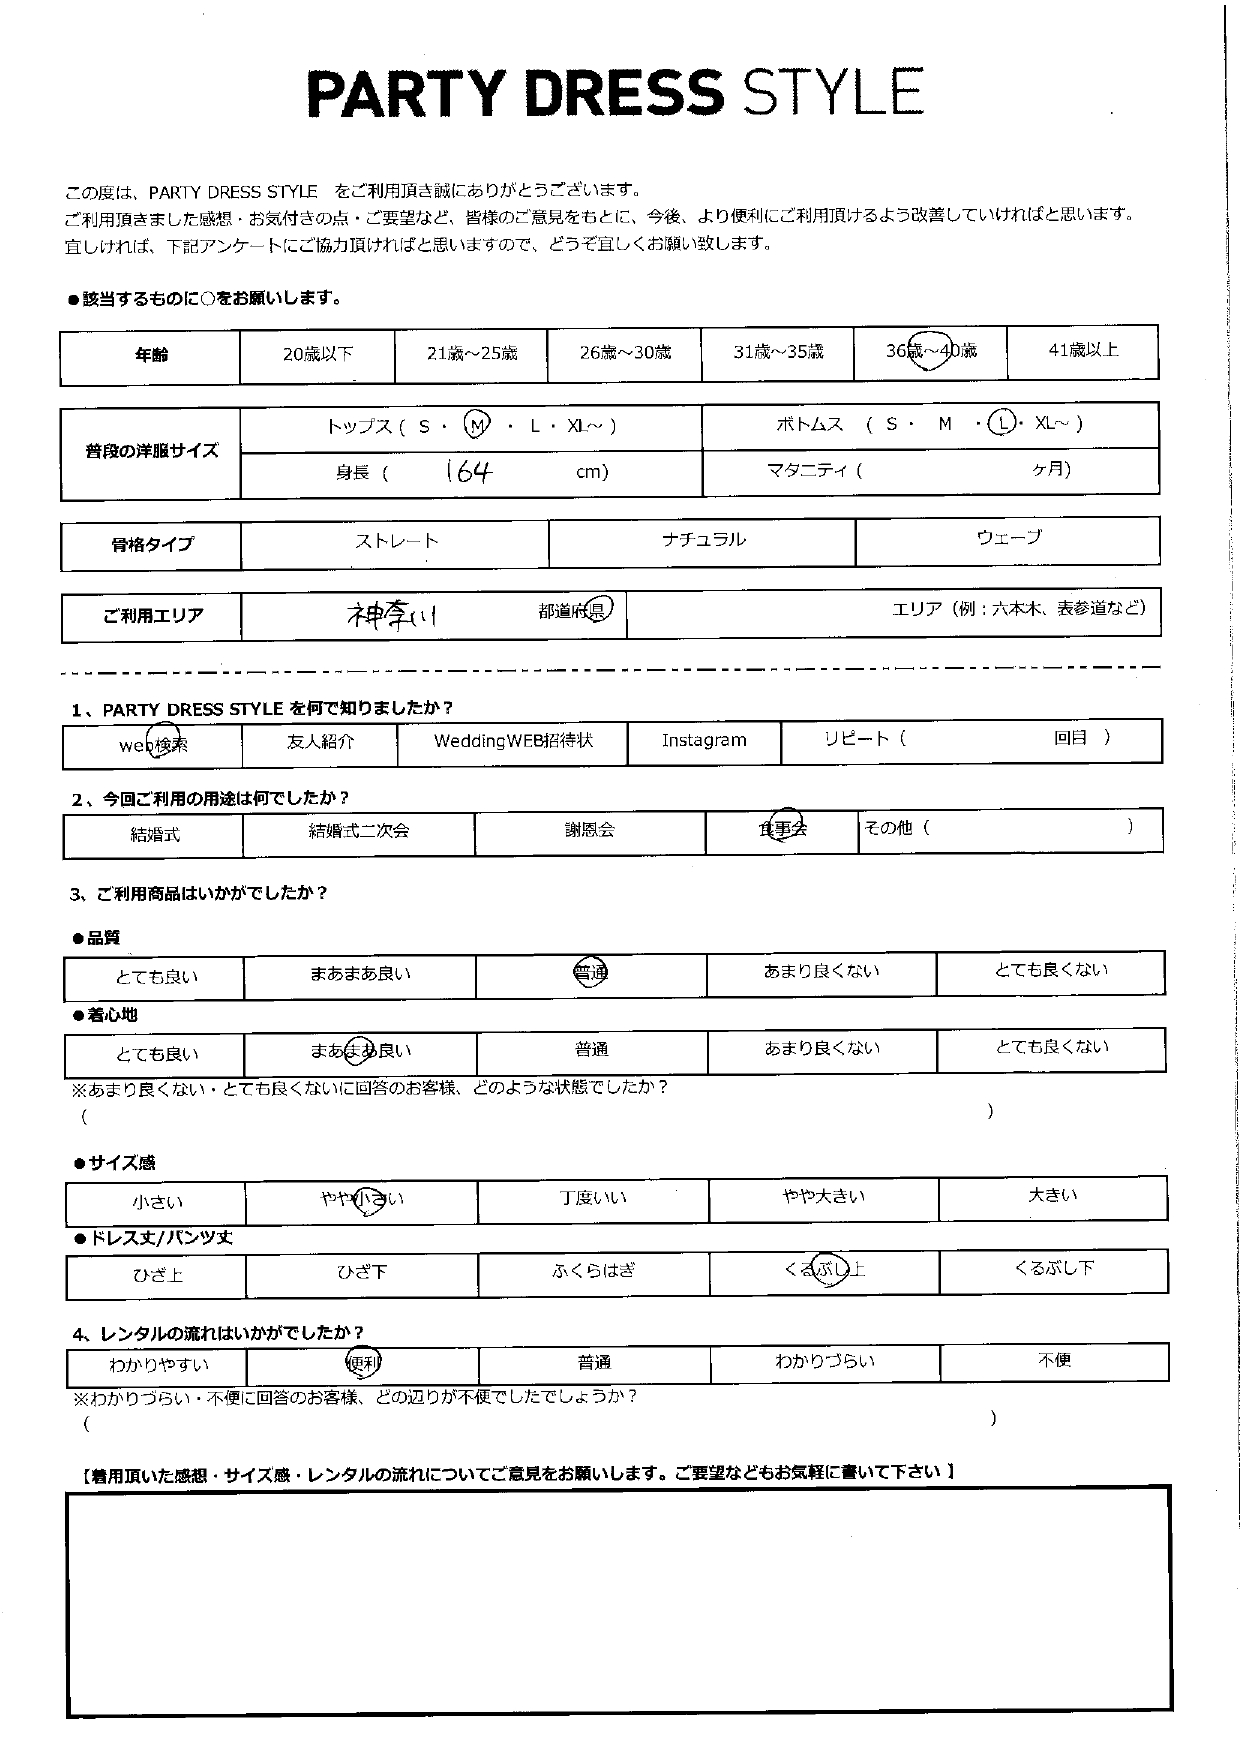 PARTY DRESS STYLE
この度は、PARTY DRESS STYLE をご利用頂き誠にありがとうございます。
ご利用頂きました感想・お気付きの点・ご要望など、皆様のご意見をもとに、今後、より便利にご利用頂けるよう改善していければと思います。
宜しければ、下記アンケートにご協力頂ければと思いますので、どうぞ宜しくお願い致します。
●該当するものに○をお願いします。
年齢 20歳以下 21歳～25歳 26歳～30歳 31歳～35歳 36歳～40歳 41歳以上
普段の洋服サイズ トップス ( S ・ M ・ L ・ XL～ ) ボトムス ( S ・ M ・ L ・ XL～ )
身長 ( 164 cm) マタニティ ( ヶ月)
骨格タイプ ストレート ナチュラル ウェーブ
ご利用エリア 神奈川 都道府県 エリア（例：六本木、表参道など）
1、PARTY DRESS STYLE を何で知りましたか？
web検索 友人紹介 WeddingWEB招待状 Instagram リピート（ 回目 ）
2、今回ご利用の用途は何でしたか？
結婚式 結婚式二次会 謝恩会 食事会 その他（ ）
3、ご利用商品はいかがでしたか？
●品質
とても良い まあまあ良い 普通 あまり良くない とても良くない
●着心地
とても良い まあまあ良い 普通 あまり良くない とても良くない
※あまり良くない・とても良くないに回答のお客様、どのような状態でしたか？
（ ）
●サイズ感
小さい やや小さい 丁度いい やや大きい 大きい
●ドレス丈/パンツ丈
ひざ上 ひざ下 ふくらはぎ くるぶし上 くるぶし下
4、レンタルの流れはいかがでしたか？
わかりやすい 便利 普通 わかりづらい 不便
※わかりづらい・不便に回答のお客様、どの辺りが不便でしたでしょうか？
（ ）
【着用頂いた感想・サイズ感・レンタルの流れについてご意見をお願いします。ご要望などもお気軽に書いて下さい 】